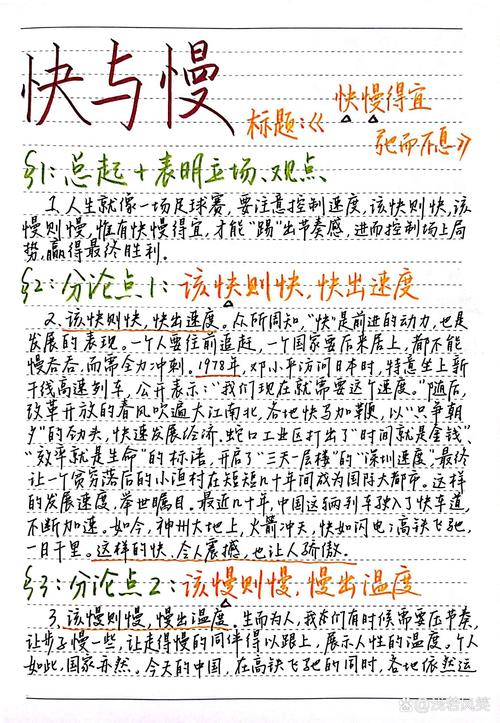 快与慢
标题:《快慢得宜
驰而不息》
§1:总起+表明立场、观点
1.人生就像一场足球赛,要注意控制速度,该快则快,该
慢则慢,惟有快慢得宜,才能“踢”出节奏感,进而控制场上局
势,赢得最终胜利.
§2:分论点1:该快则快,快出速度
2.该快则快,快出速度。众所周知,“快”是前进的动力,也是
发展的表现。一个人要往前追赶,一个国家要后来居上,都不能
慢吞吞,而需全力冲刺。1978年,邓小平访问日本时,特意坐上新
干线高速列车,公开表示:“我们现在就需要这个速度。”随后,
改革开放的春风吹遍大江南北,各地快马加鞭,以“只争朝
夕”的劲头,快速发展经济.蛇口工业区打出了“时间就是金钱”、
“效率就是生命”的标语,开启了“三天一层楼”的“深圳速度”,最终
让一个贫穷落后的小渔村在短短几十年间成为国际大都市。这样
的发展速度,举世瞩目。最近几十年,中国这辆列车驶入了快车道,
不断加速。如今,神州大地上,火箭冲天,快如闪电;高铁飞驰,
一日千里。这样的快,令人震撼,也让人骄傲.
§3:分论点2:该慢则慢,慢出温度
3.该慢则慢,慢出温度。生而为人,我们有时候需要压节奏,
让步子慢一些,让走得慢的同伴得以跟上,展示人性的温度。个人
如此,国家亦然。今天的中国,在高铁飞驰的同时,各地依然运